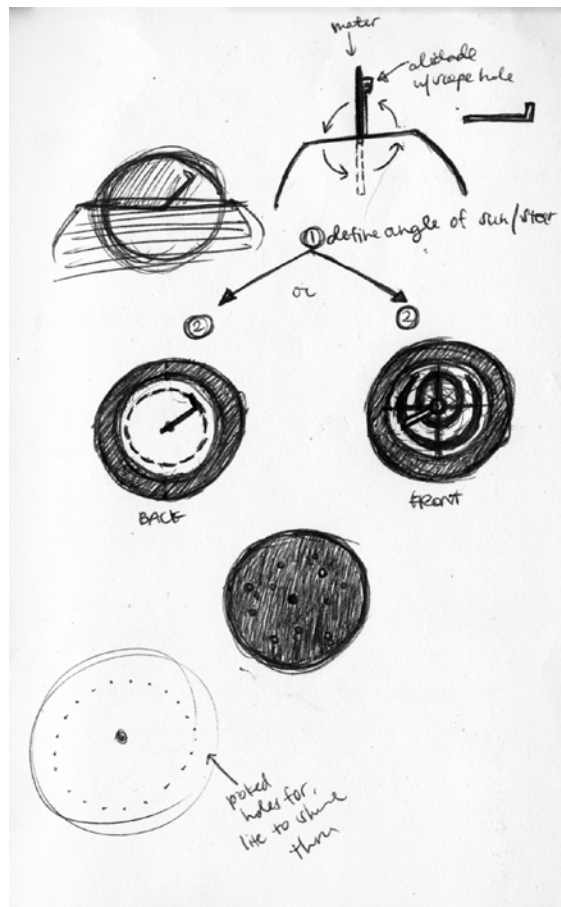 meter
alidade
w/ scope hole
① define angle of sun/star
or
②
②
BACK
FRONT
poked
holes for
lite to shine
thru